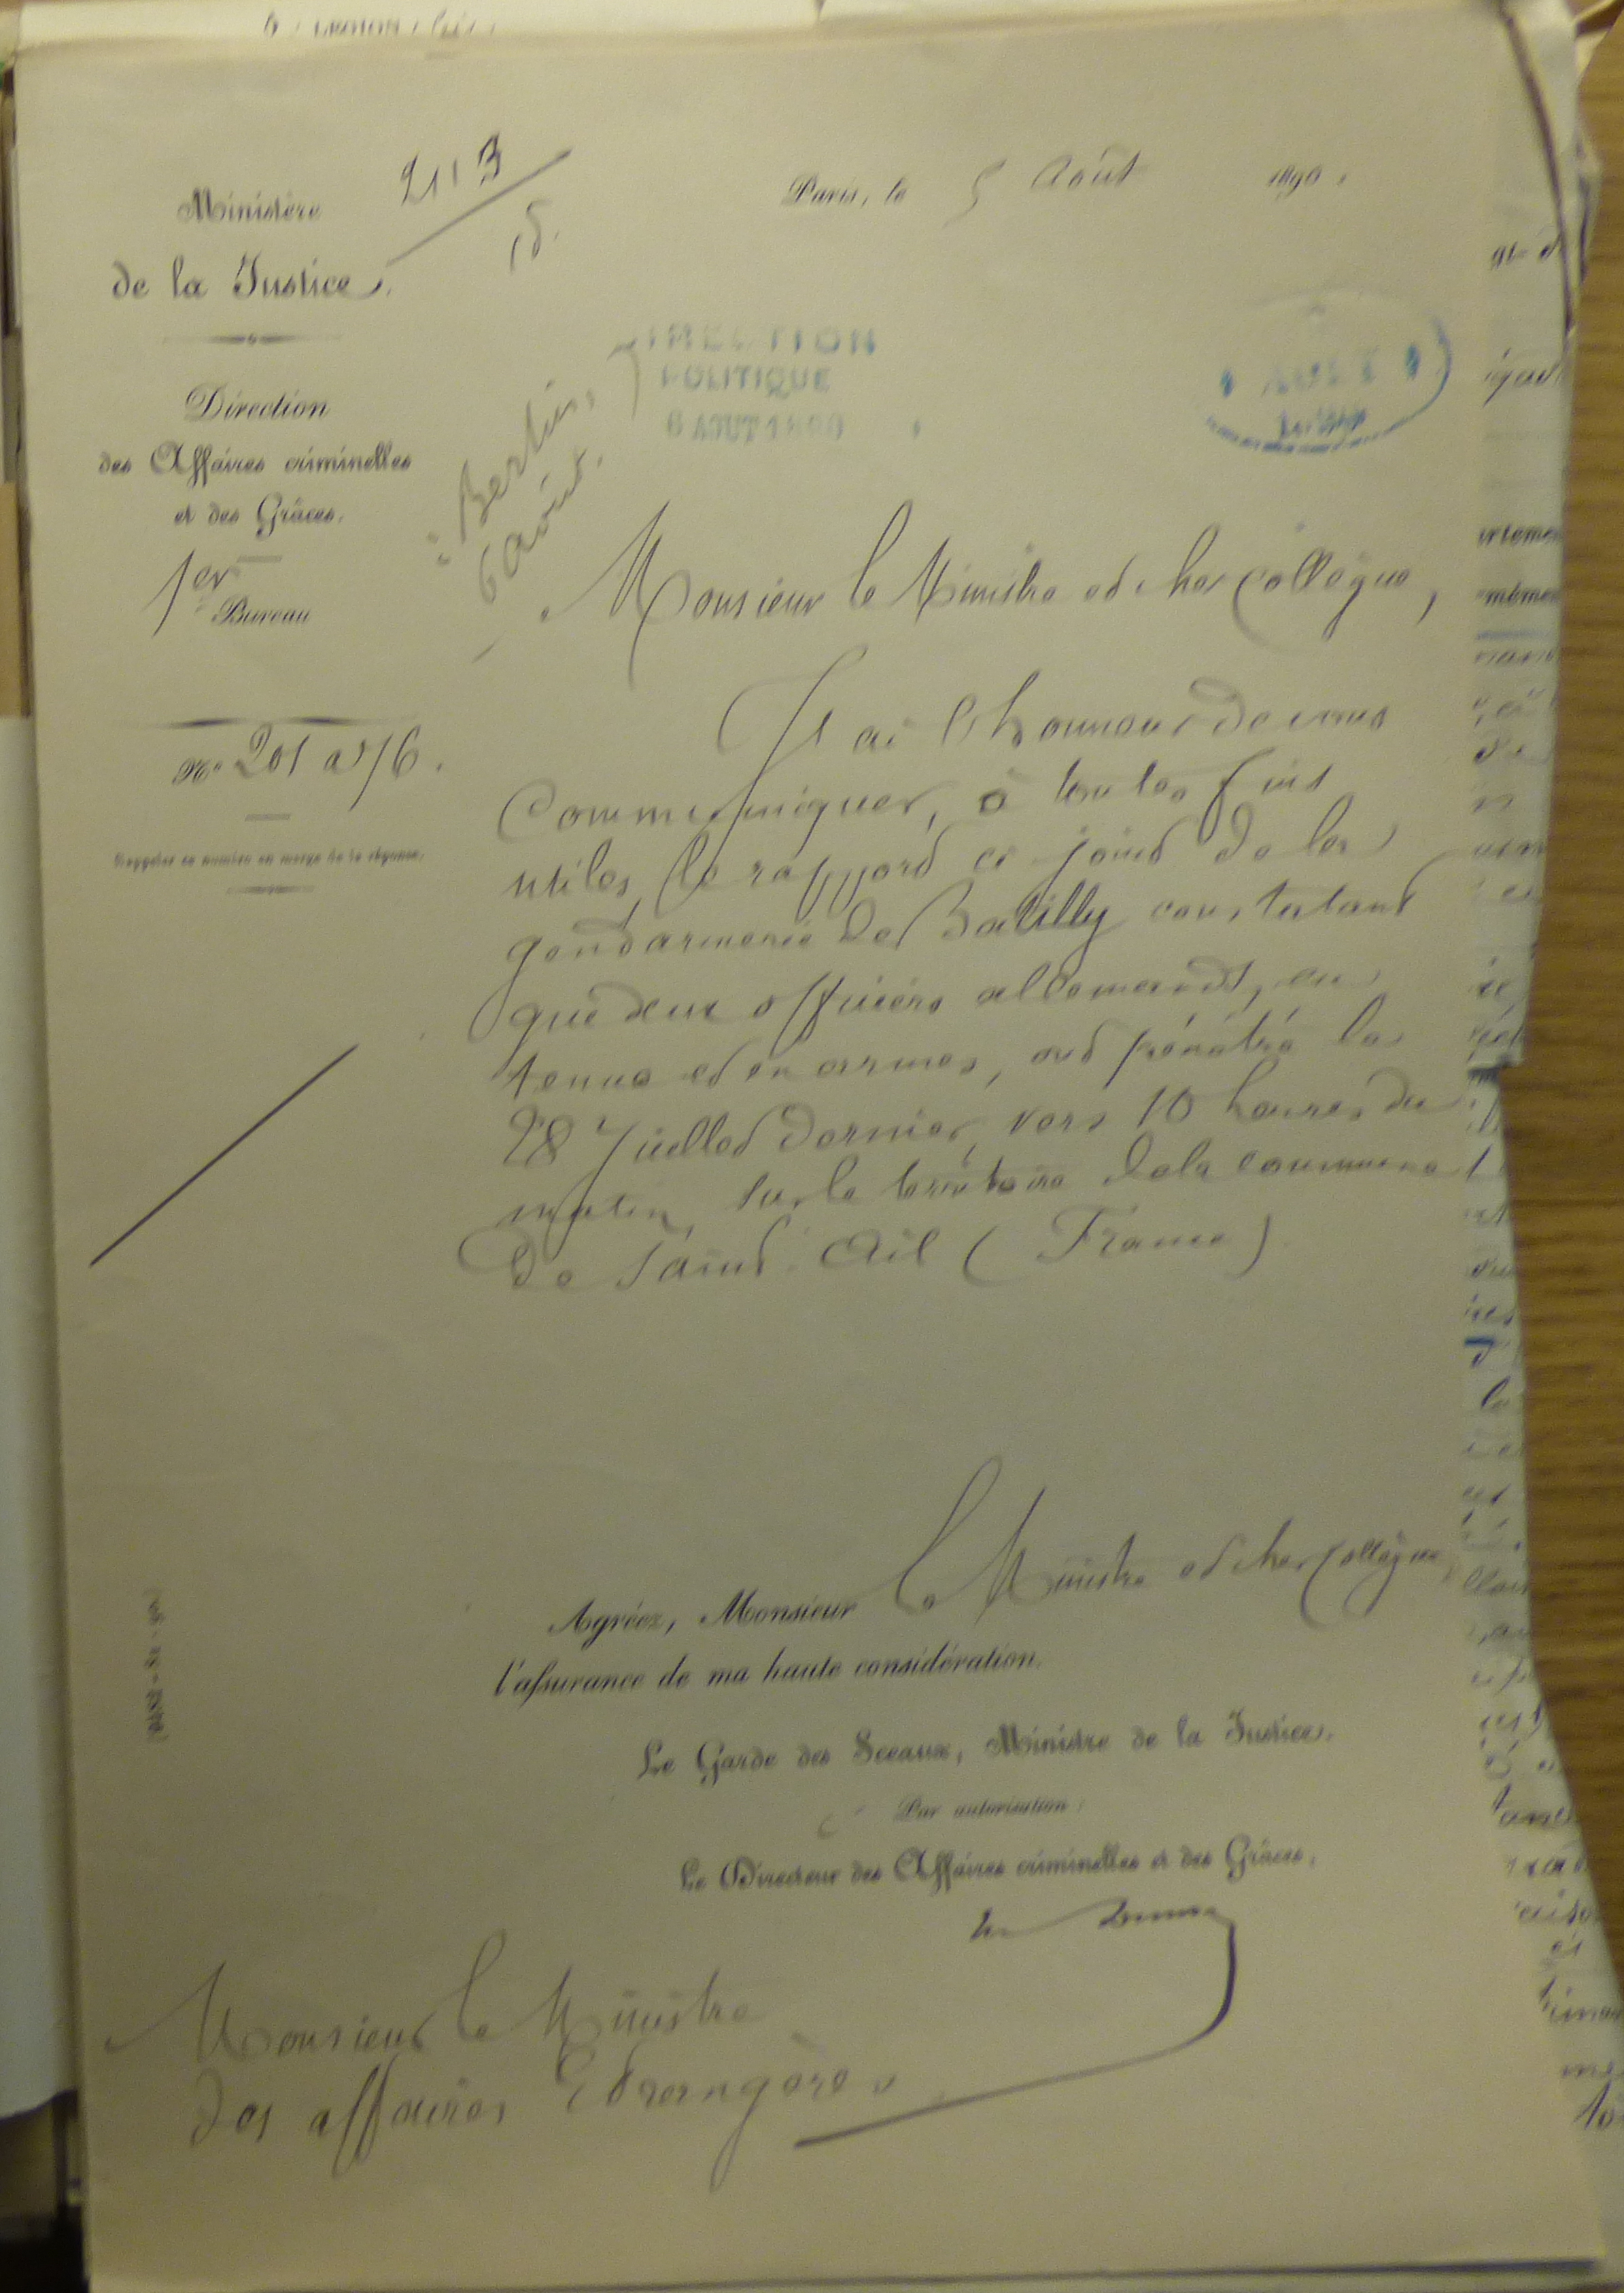 2113
Ministère
de la Justice.
Direction
des Affaires criminelles
et des Grâces.
1er Bureau
No 201 a 76.
Rappeler ce numéro en marge de la réponse.
Paris, le 5 Août 1890.
DIRECTION
POLITIQUE
6 AOUT 1890
à Berlin,
6 août.
Monsieur le Ministre et cher Collègue,
J'ai l'honneur de vous
communiquer, à toutes fins
utiles, le rapport ci joint de la
gendarmerie de Batilly constatant
que deux officiers allemands, en
tenue et en armes, ont pénétré le
28 Juillet dernier, vers 10 heures du
matin, sur le territoire de la commune
de Saint-Ail (France)
Agréez, Monsieur le Ministre et cher Collègue,
l'assurance de ma haute considération.
Le Garde des Sceaux, Ministre de la Justice.
Par autorisation :
Le Directeur des Affaires criminelles et des Grâces,
Monsieur le Ministre
des affaires Etrangères